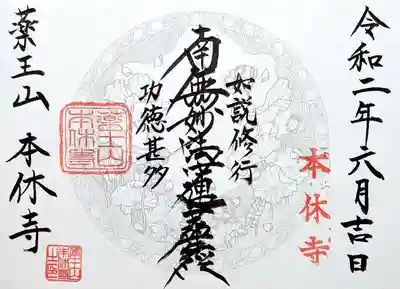 令和二年六月吉日
本休寺
如説修行
南無妙法蓮華経
功徳甚多
薬王山 本休寺